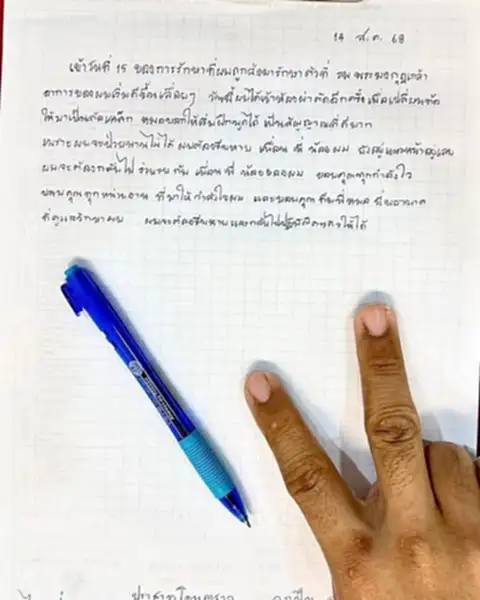 14 ส.ค. 68
เข้าวันที่ 15 ของการรักษาที่ผมถูกส่งมารักษาตัวที่ รพ.พระมงกุฎเกล้า
อาการของผมเริ่มดีขึ้นเรื่อยๆ วันนี้ผมได้เข้าห้องผ่าตัดอีกครั้ง เพื่อเปลี่ยน
ให้มาเป็น หมอบอกให้เริ่มฝึกพูดได้ เป็นสัญญาณที่ดีมาก
เพราะผมจะป่วยนานไม่ได้ ผมต้องรีบหาย เพื่อน พี่ น้องผม ยังอยู่แนวหน้าอยู่เลย
ผมจะต้องกลับไป ร่วมรบ กับ เพื่อน พี่ น้องของผม ขอบคุณทุกกำลังใจ
ขอบคุณทุกท่าน ที่มาให้กำลังใจผม และขอบคุณ ทีมพี่หมอ พี่พยาบาล
ที่ดูแลรักษาผม ผมจะต้องรีบหายและกลับไปปฏิบัติ ให้ได้